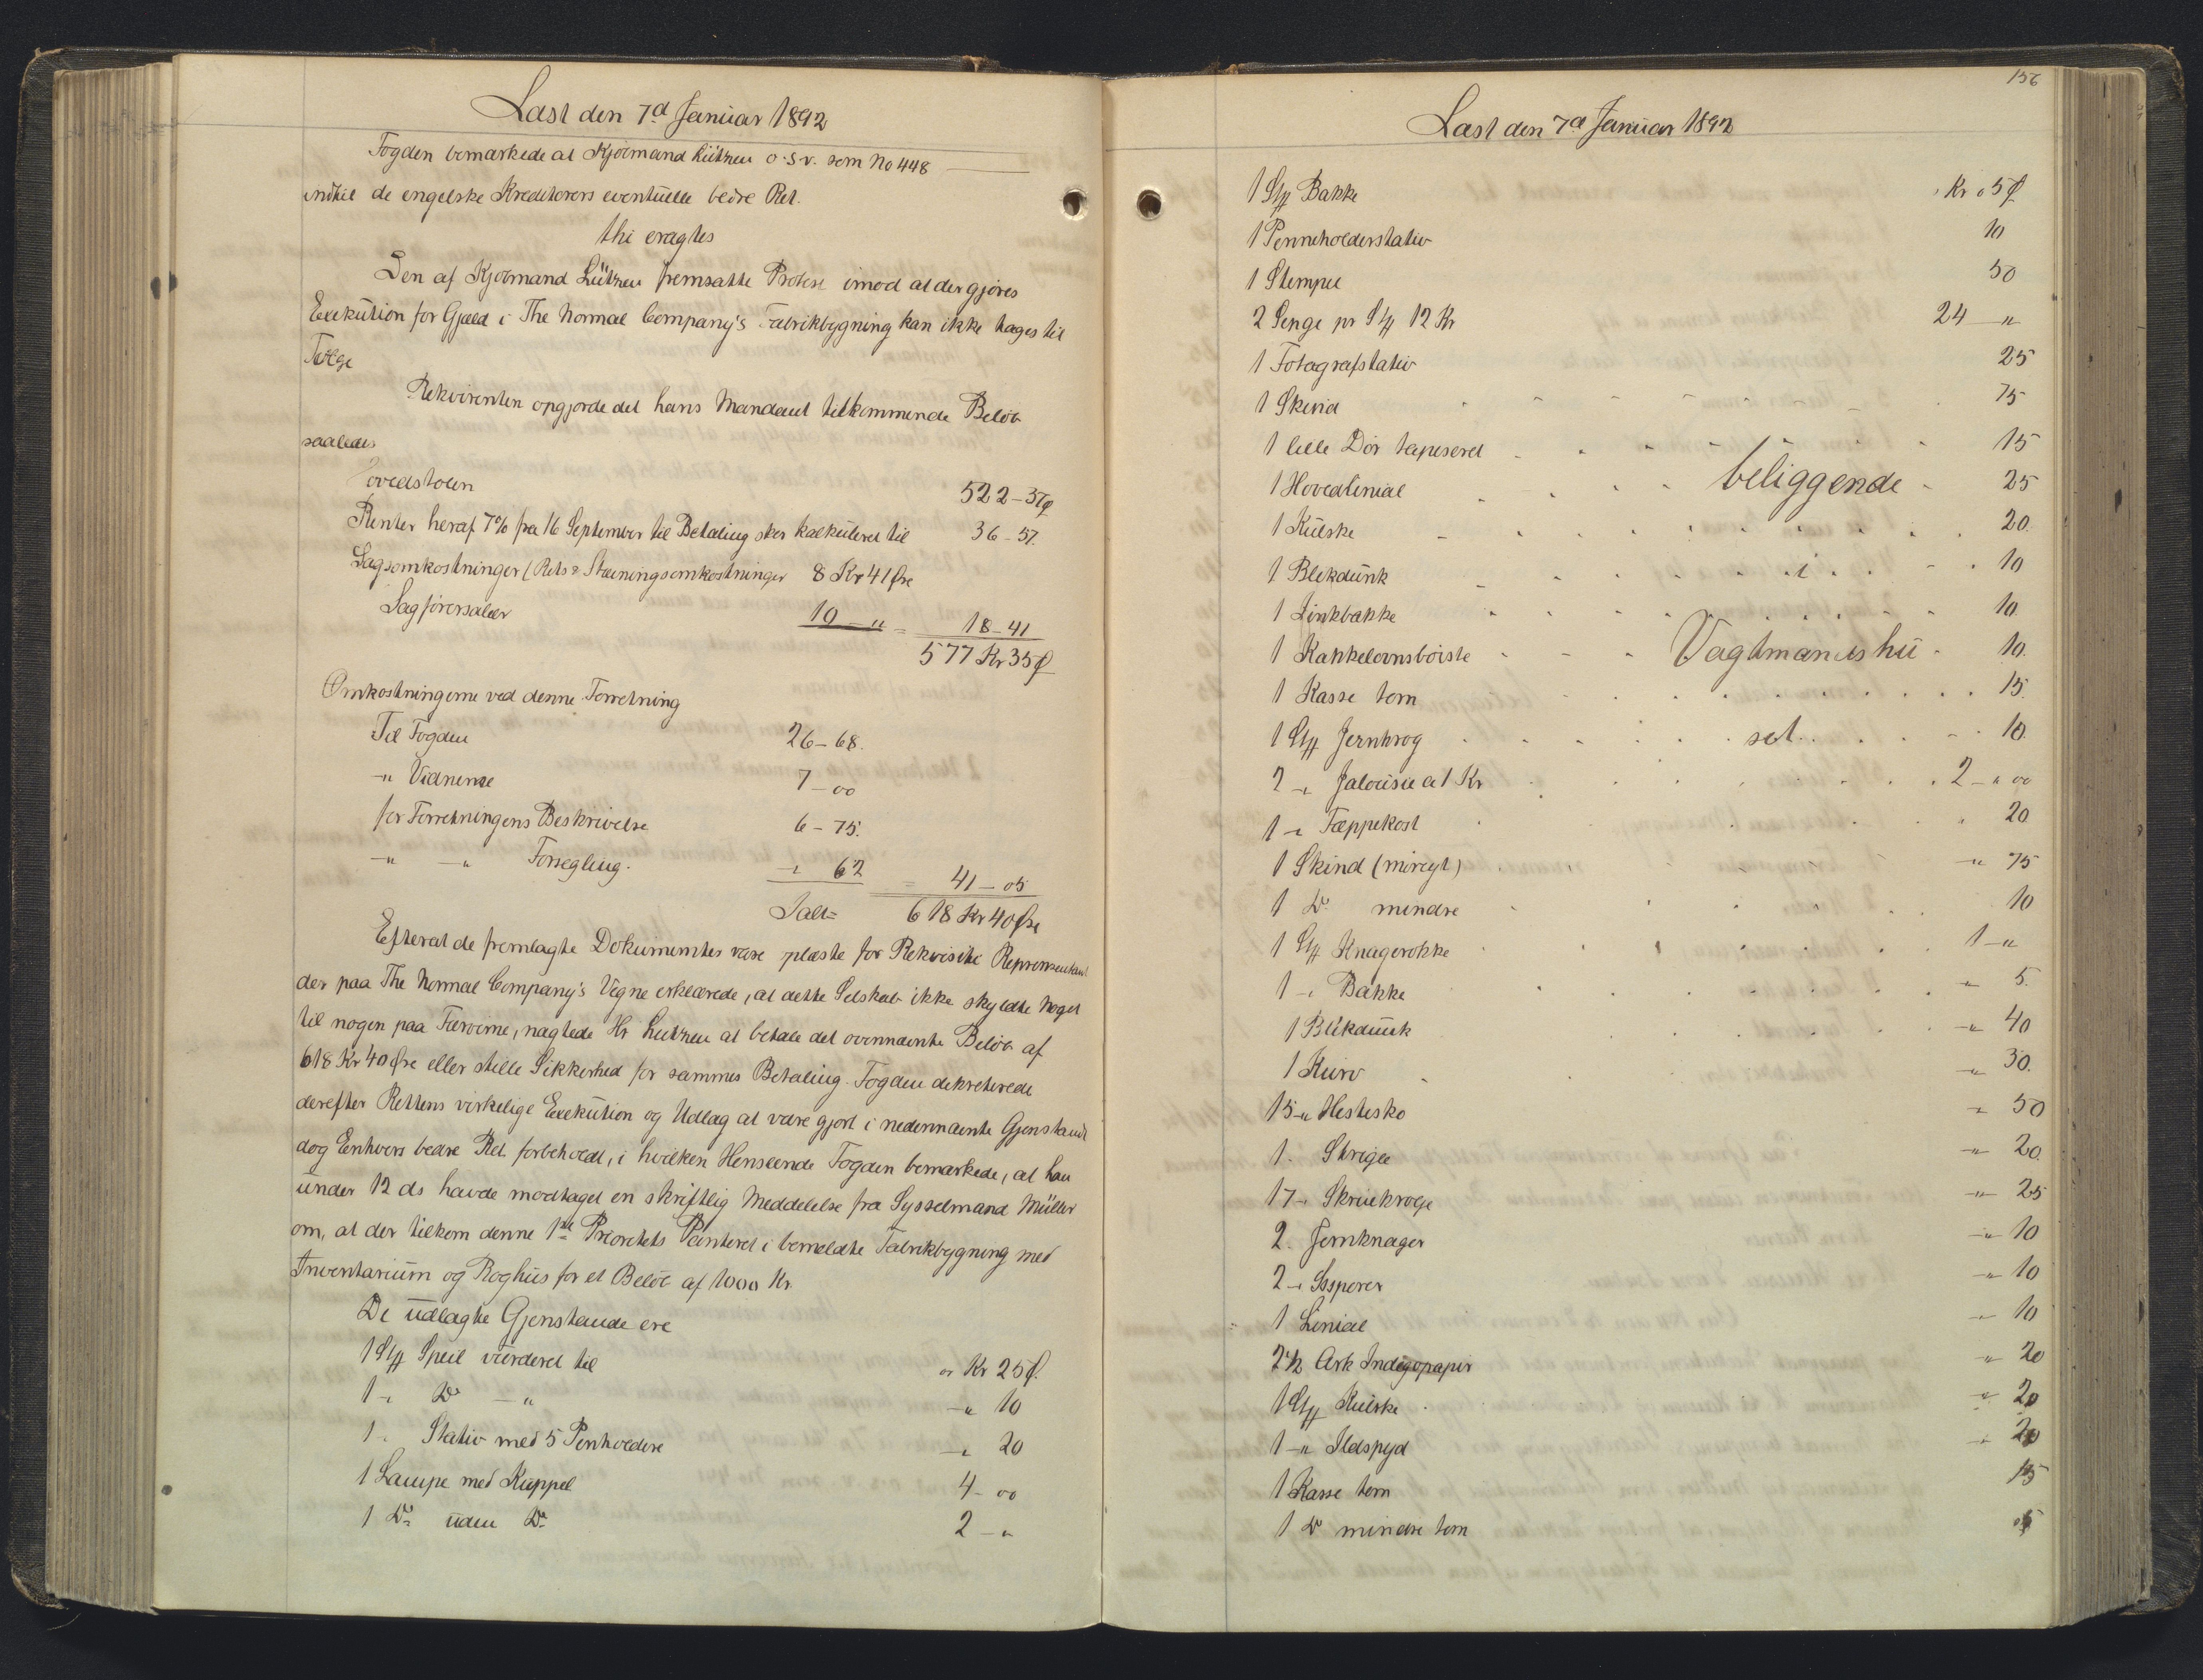 Læst den 7d Januar 1892
Fogden bemærkede at Kjöbmand Lützen o.s.v. som No 448
indtil de engelske Kreditorers eventuelle bedre Ret.
thi eragtes
Den af Kjöbmand Lützen fremsatte Protest imod at der gjöres
Exekution for Gjæld i The Normal Company's Fabrikbygning kan ikke tages til
Fölge
Rekvirenten opgjorde det hans Mandant tilkommende Belöb
saaledes
Hovedstolen 522-37 ø
Renter heraf 7% fra 16 September til Betaling sker kalkuleret til 36-57.
Sagsomkostninger (Rets & Stævningsomkostninger 8 Kr 41 Øre
Sagförersalær 10 -" = 18-41
577 Kr 35 Ø
Omkostningerne ved denne Forretning
Til Fogden 26-68.
-" Vidnerne 7-00
for Forretningens Beskrivelse 6-75.
-" -" Forsegling. -" 62 = 41-05
Ialt = 618 Kr 40 Øre
Efterat de fremlagte Dokumenter vare oplæste for Rekvisiti Repræsentant
der paa The Normal Company's Vegne erklærede, at dette Selskab ikke skyldte noget
til nogen paa Færöerne, nægtede Hr Lützen at betale det ovennævnte Belöb af
618 Kr 40 Øre eller stille Sikkerhed for sammes Betaling. Fogden dekreterede
derefter Rettens virkelige Exekution og Udlæg at være gjort i nedennævnte Gjenstande
dog Enhvers bedre Ret forbeholdt, i hvilken Henseende Fogden bemærkede, at han
under 12 ds havde modtaget en skriftlig Meddelelse fra Sysselmand Müller
om, at der tilkom denne 1ste Prioritets Panteret i bemeldte Fabrikbygning med
Inventarium og Roghus for et Belöb af 1000 Kr.
De udlagte Gjenstande ere
1 Stk Speil vurderet til " Kr 25 Ø.
1 -" Do -" -" 10
1 -" Stativ med 5 Penholdere -" 20
1 Lampe med Kuppel 4-00
1 Do uden Do 2-"
156
Læst den 7d Januar 1892
1 Stk Bakke " Kr 05 Ø
1 Penneholderstativ 10
1 Stempel 50
2 Senge pr Stk 12 Kr 24-"
1 Fotografstativ 25
1 Skind 75
1 lille Dör tapeseret 15
1 Hovedlinial beliggende 25
1 Kulske 20.
1 Blikdunk i 10
1 Zinkbakke 10
1 Kakkelovnsbörste Vagtmandshu 10.
1 Kasse tom 15.
1 Stk Jernkrog set 10.
2 -" Jalousie a 1 Kr 2-"00
1 -" Tæppekost 20
1 Skind -" 75
1 Do mindre 10
1 Stk Knagerække 1-"
1 -" Bakke -" 5.
1 Blikdunk -" 40
1 Kurv -" 30.
15 -" Hestesko -" 50
1. Strigle -" 20.
17 -" Skruekroge -" 25
2. Jernknager -" 10
2 -" -" 10
1 Linial -" 10
2½ Ark Indigopapir -" 20
1 Stk Kulske -" 20
1 -" Ildspyd -" 20
1 Kasse tom 15
1 Do mindre tom 05